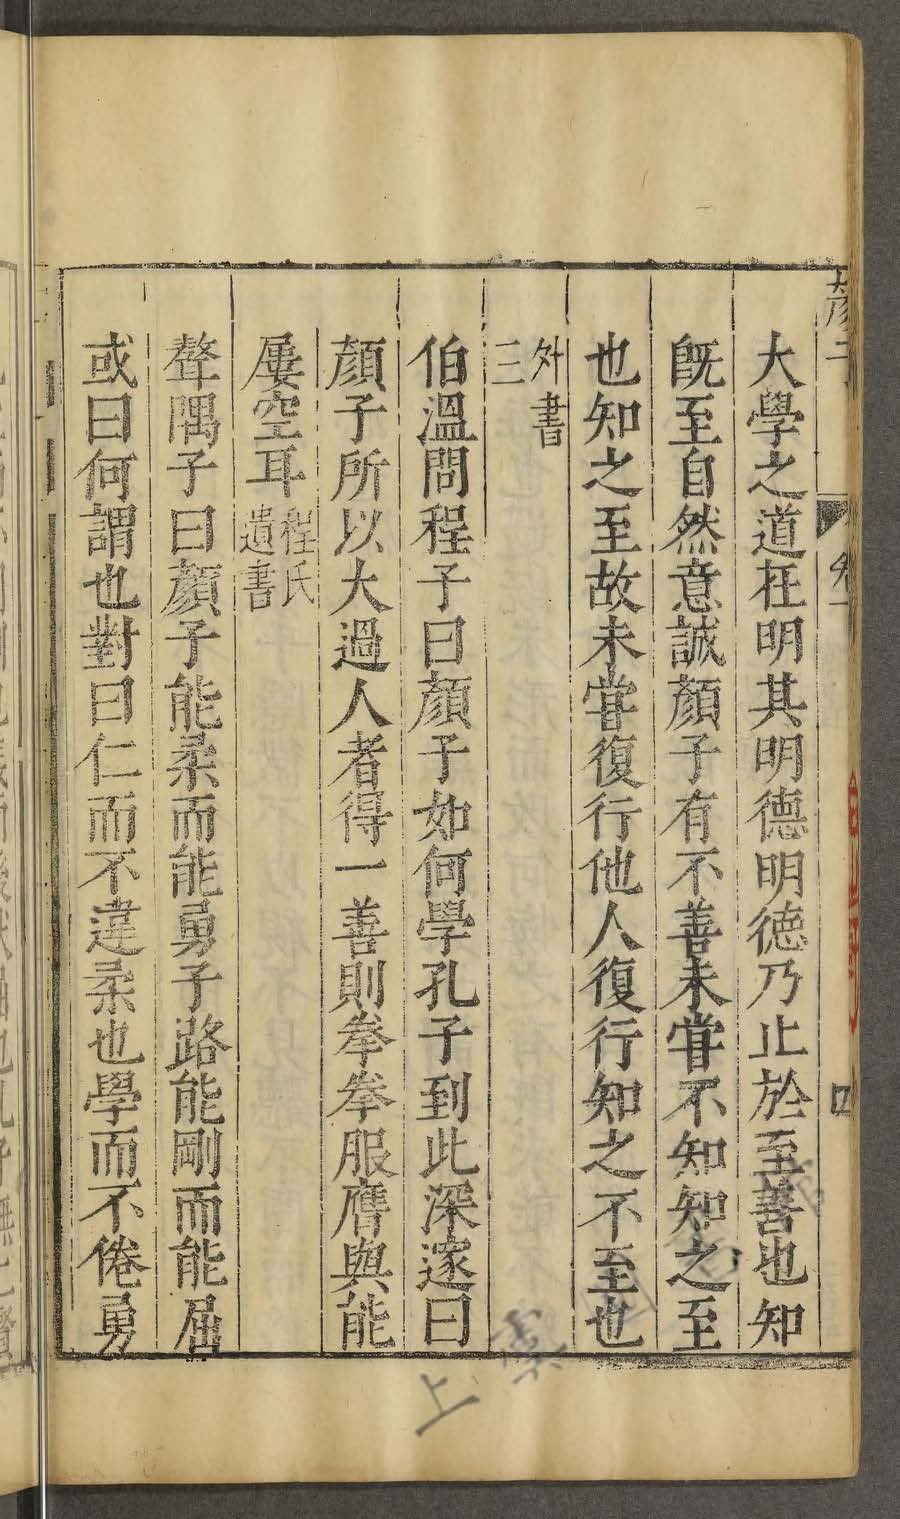 大學之道在明其明德明德乃止於至善也知
既至自然意誠顏子有不善未嘗不知知之至
也知之至故未嘗復行他人復行知之不至也
外書
三
伯溫問程子曰顏子如何學孔子到此深邃曰
顏子所以大過人者得一善則拳拳服膺與能
屢空耳程氏
遺書
聱隅子曰顏子能柔而能勇子路能剛而能屈
或曰何謂也對曰仁而不違柔也學而不倦勇